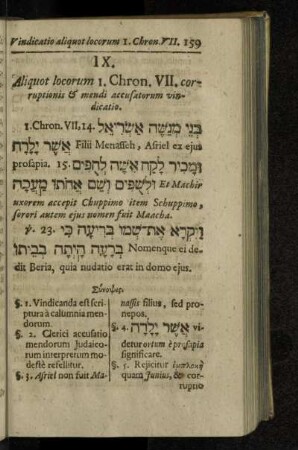 Vindicatio aliquot locorum 1. Chron. VII. 159
IX.
Aliquot locorum 1. Chron. VII. cor-
ruptionis & mendi accusatorum vin-
dicatio.
1. Chron. VII, 14. בְּנֵי מְנַשֶּׁה אַשְׂרִיאֵל
אֲשֶׁר יָלָדָה Filii Menasseh, Asriel ex ejus
prosapia. 15. וּמָכִיר לָקַח אִשָּׁה לְחֻפִּים
וּלְשֻׁפִּים וְשֵׁם אֲחֹתוֹ מַעֲכָה Et Machir
uxorem accepit Chuppimo item Schuppimo,
sorori autem ejus nomen fuit Maacha.
ỳ. 23. וַיִּקְרָא אֶת־שְׁמוֹ בְּרִיעָה כִּי
בְרָעָה הָיְתָה בְּבֵיתוֹ Nomenque ei de-
dit Beria, quia nudatio erat in domo ejus.
Σύνοψις.
§. 1. Vindicanda est scri-
ptura à calumnia men-
dorum.
§. 2. Clerici accusatio
mendorum Judaico-
rum interpretum mo-
destè refellitur.
§. 3. Asriel non fuit Ma-
nassis filius, sed pro-
nepos.
§. 4. אֲשֶׁר יָלָדָה vi-
detur ortum è prosapia
significare.
§. 5. Rejicitur
quam Junius, & cor-
ruptio